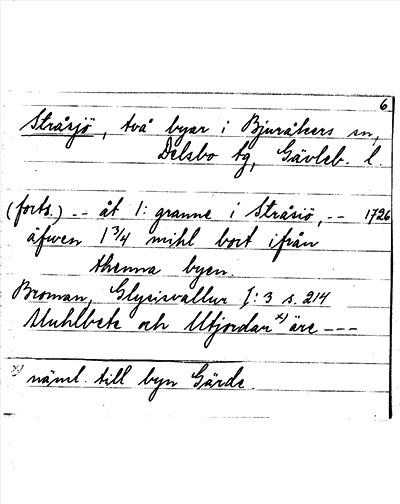 6.
Stråsjö, två byar i Bjuråkers sn,
Delsbo tg, Gävleb. l.
(forts.) -- åt 1: granne i Stråsiö, -- 1726
äfwen 1 3/4 mihl bort ifrån
thenna byen.
Broman, Glysisvallur I: 3 s. 214
Muhlbete och Utjordar x) äre ---
x) näml. till byn Gärde.